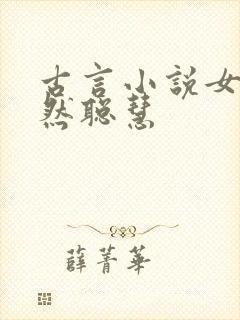 古言小説女
然聰慧
薛菁華